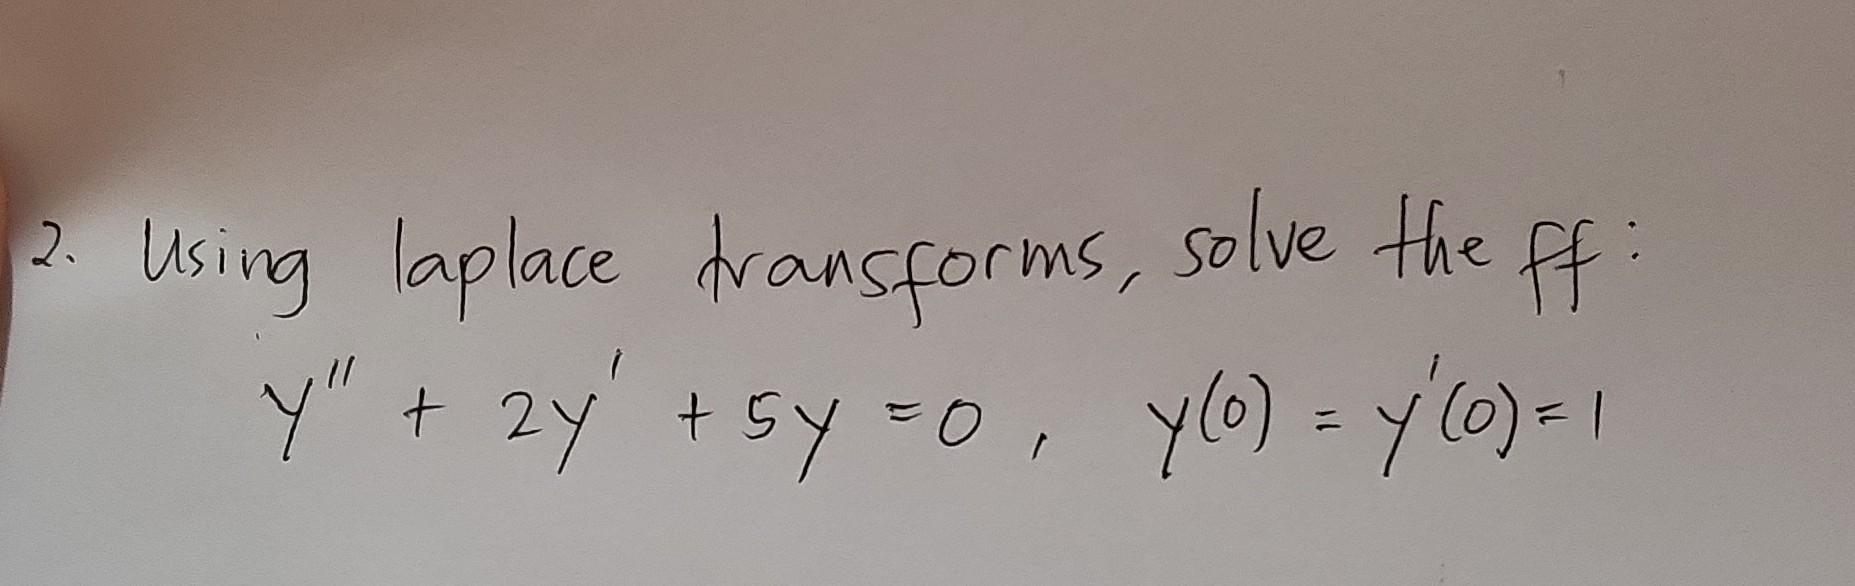 2. Using laplace transforms, solve the ff:
y'' + 2y' + 5y = 0, y(0) = y'(0) = 1